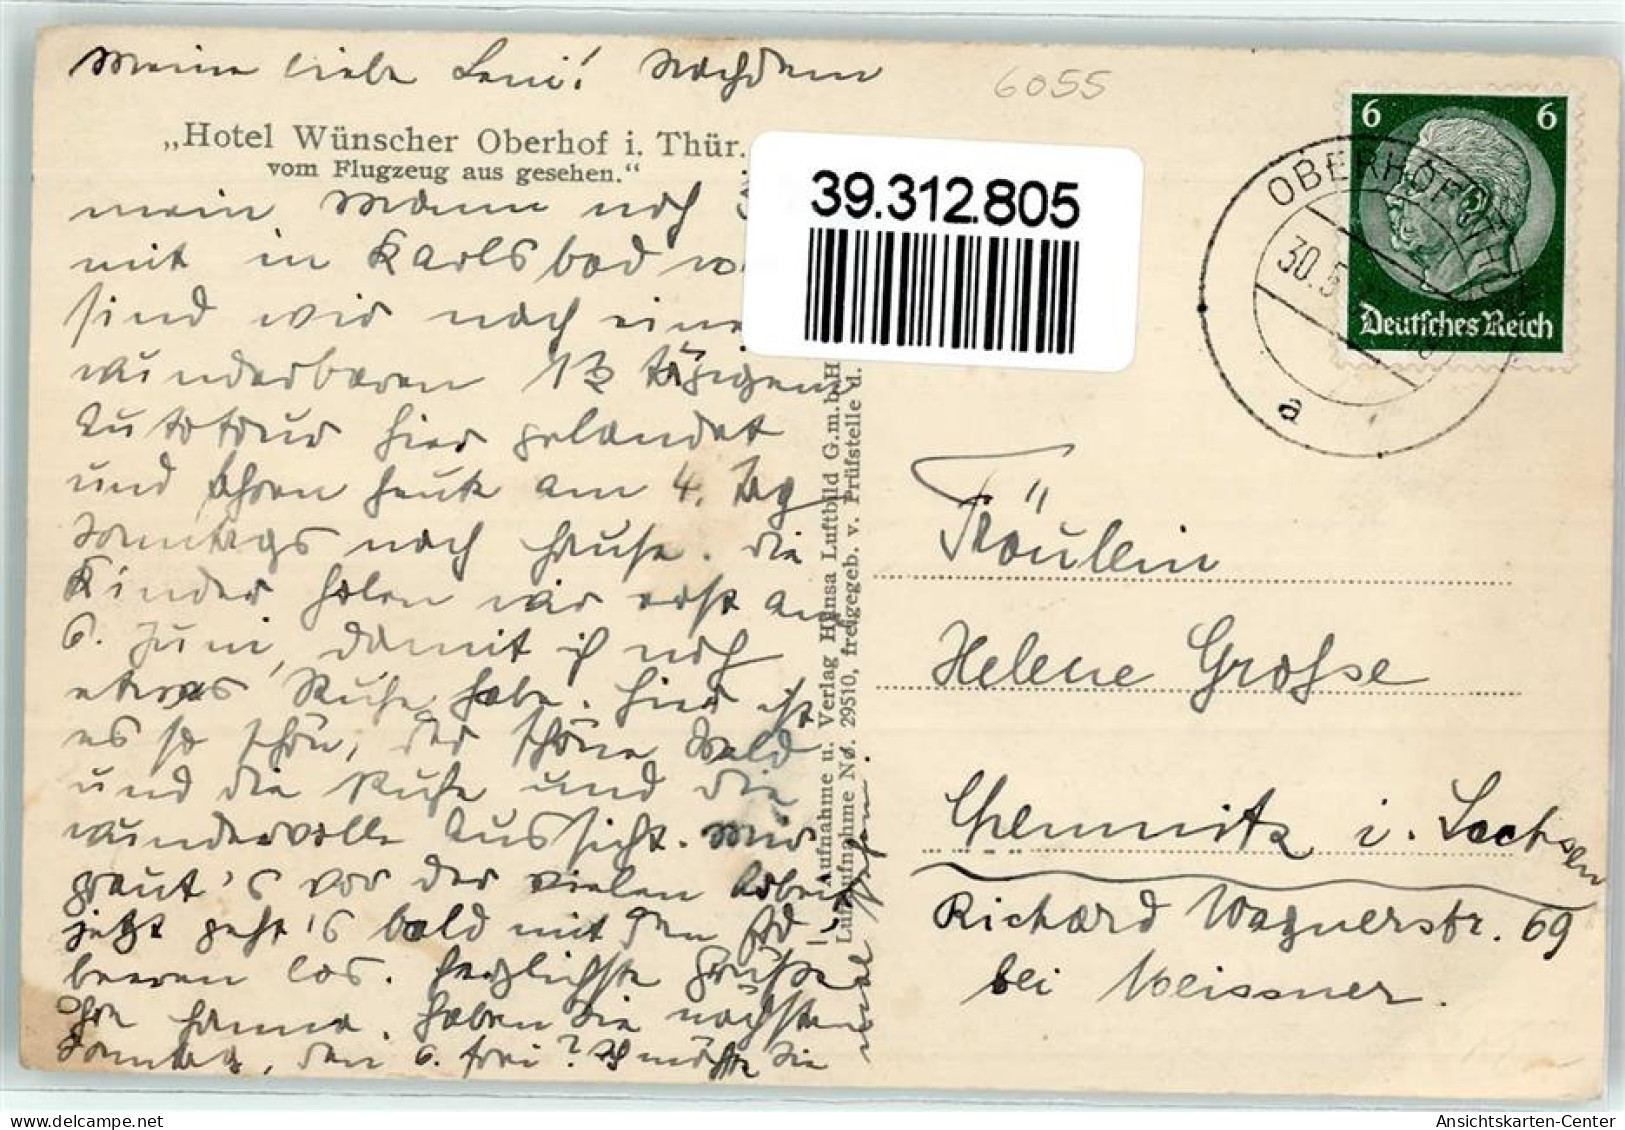 Meine liebe Leni! Nachdem
6055
„Hotel Wünscher Oberhof i. Thür.
vom Flugzeug aus gesehen.“
mein Mann noch
mit in Karlsbad
sind wir nach eine
wunderbaren 13 tägigen
Autotour hier gelandet
und fahren heute am 4. Tag
Sonntags nach Hause. Die
Kinder holen wir erst am
6. Juni, damit ich noch
etwas Ruhe habe. Hier ist
es so schön, der schöne Wald
und die Ruhe und die
wundervolle Aussicht. Mir
graut's vor der vielen Arbeit
jetzt geht's bald mit den Erd-
beeren los. Herzlichste Grüße
Ihre Hanna. Haben Sie nächsten
Sonntag, den 6. frei? Ich möchte Sie
mal sehen.
Aufnahme u. Verlag Hansa Luftbild G.m.b.H
Luftaufnahme No. 29510, freigegeb. v. Prüfstelle d.
39.312.805
6 6
Deutsches Reich
OBERHOF (THÜR)
30.5
a
Fräulein
Helene Grosse
Chemnitz i. Sachsen
Richard Wagnerstr. 69
bei Meissner.
Ansichtskarten-Center